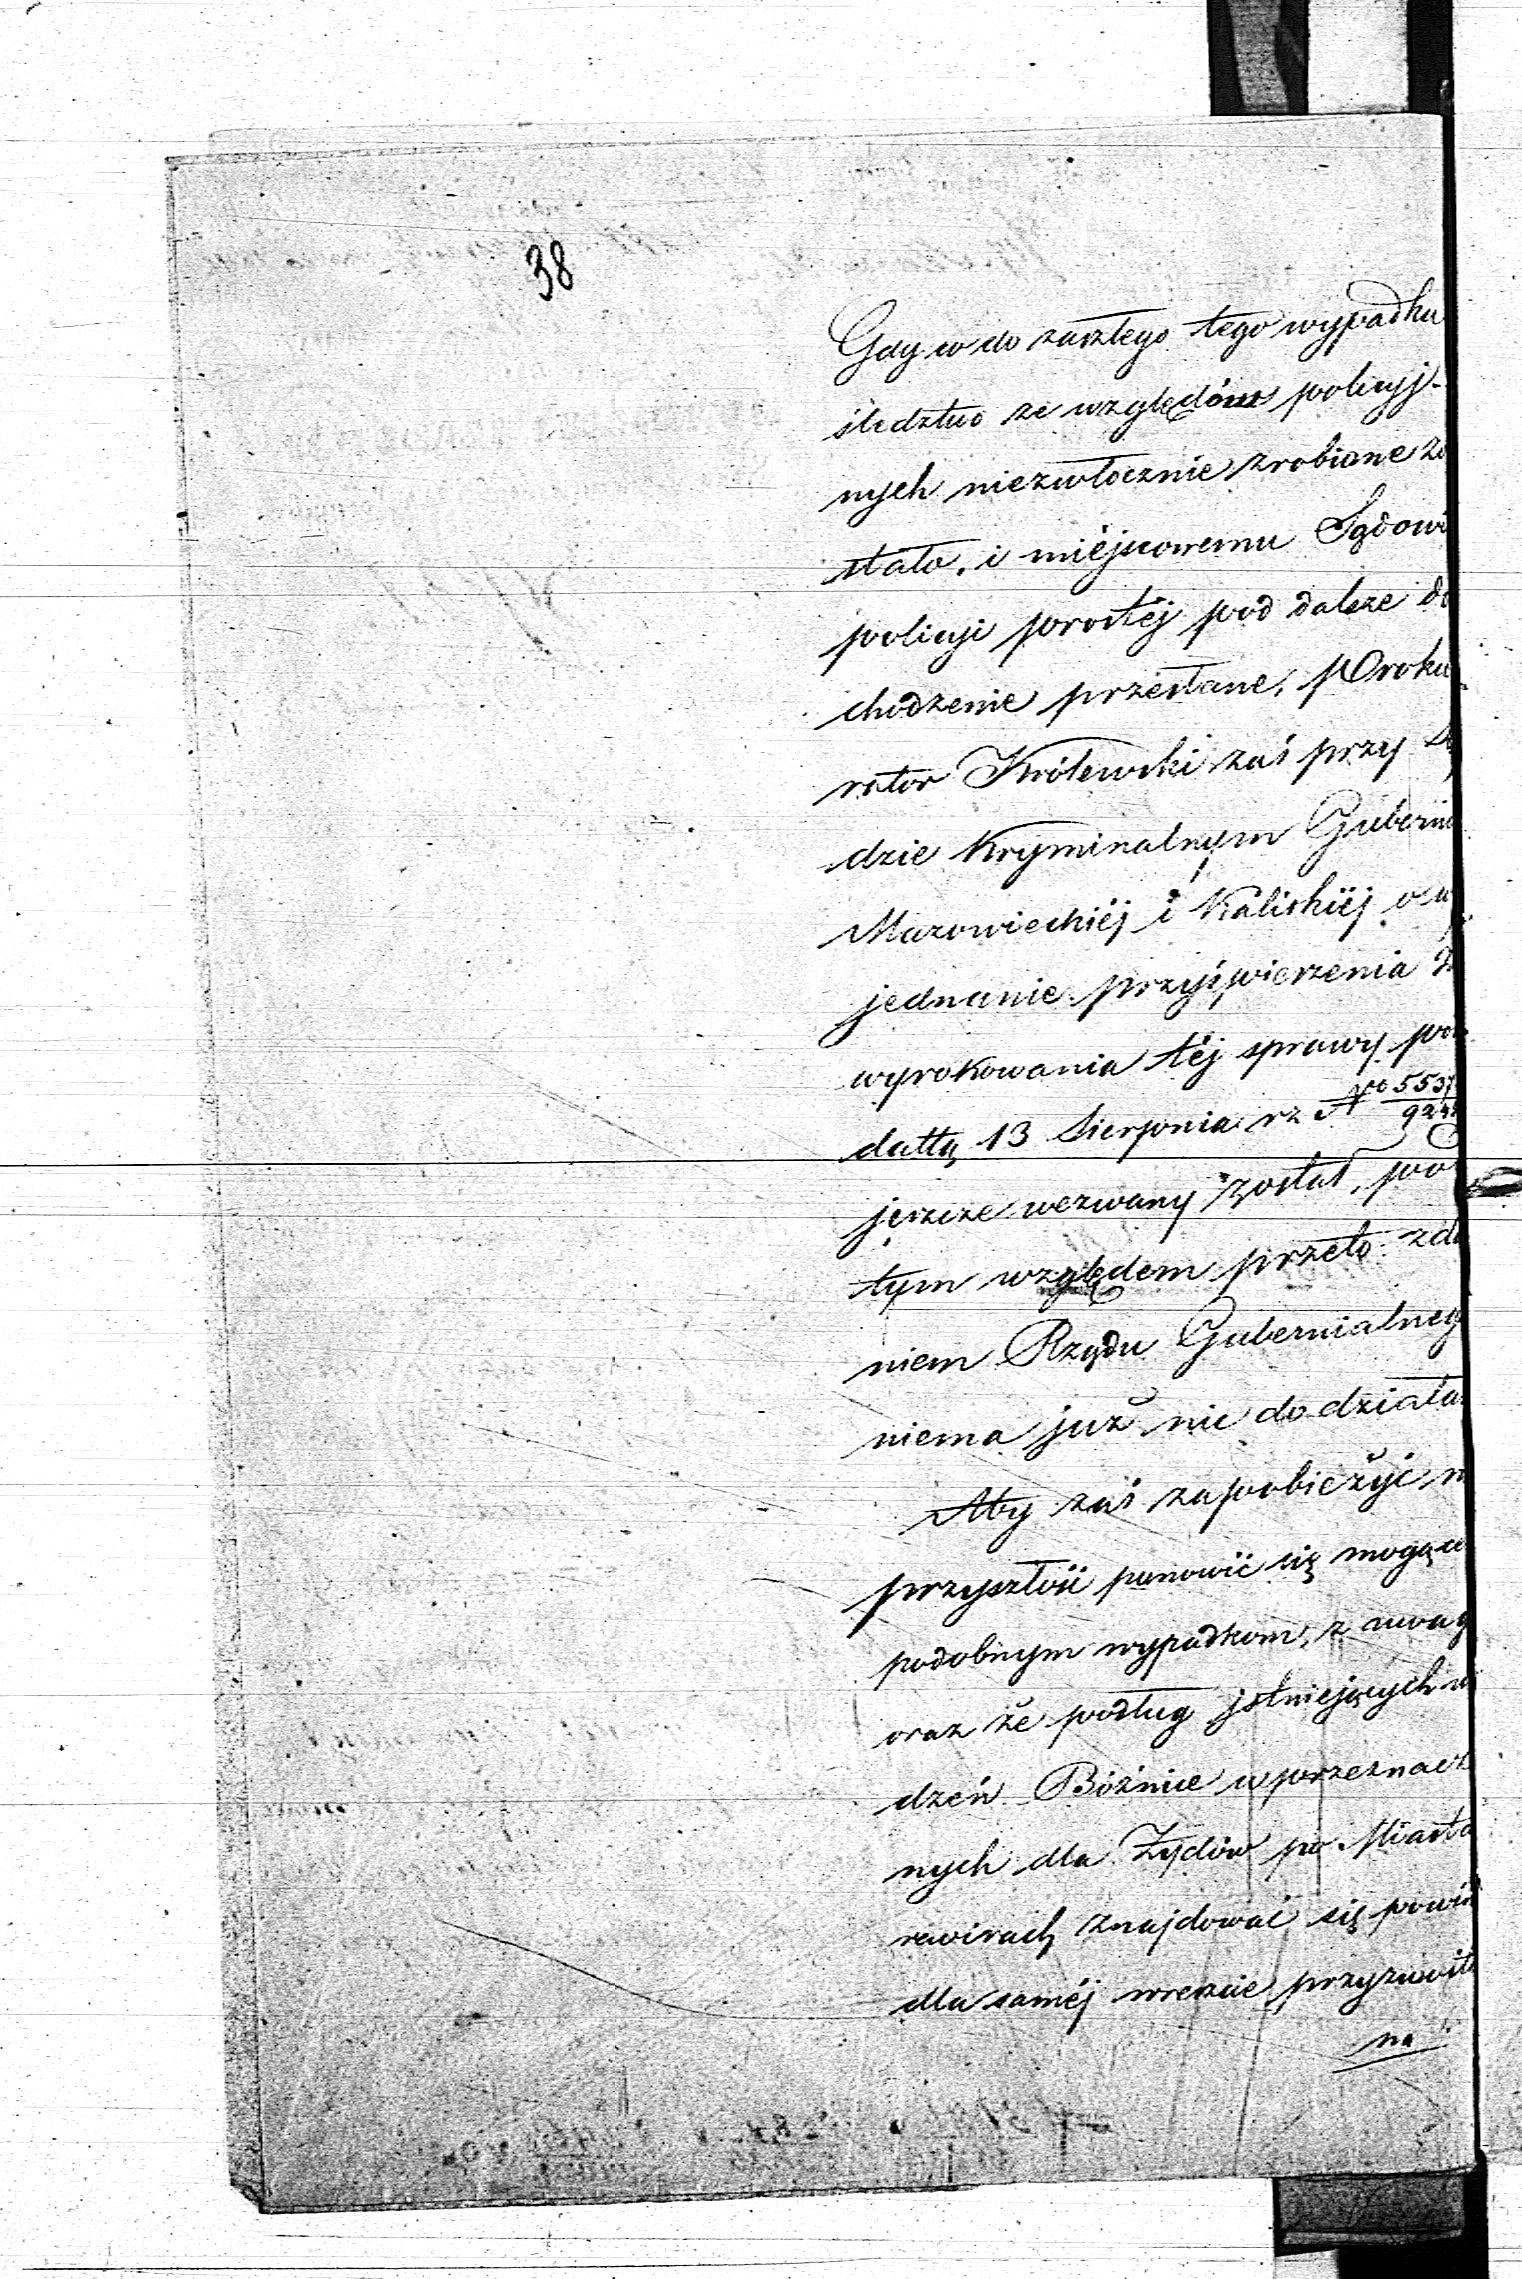 38
Gdy w do zaszłego tego wypadku
śledztwo ze względów policyj-
nych niezwłocznie zrobione zo
stało, i miéjscowemu Sądowi
policyi prostéj pod dalsze do
chodzenie przesłane, Proku
rator Królewski zaś przy Są
dzie Kryminalnym Gubernii
Mazowieckiéj i Kaliskiéj o wy
jednanie przyśpieszenia
wyrokowania téj sprawy pod
dattą 13 Sierpnia rz No 5537/924
jeszcze wezwany został, pod
tym względem przeto zda
niem Rządu Gubernialnego
niema już nic do działa
Aby zaś zapobieżyć w
przyszłości ponowić się mogącym
podobnym wypadkom, z uwagi
oraz że podług jstniejących u
dzeń Bóźnice w przeznaczo
nych dla Żydów po Miasta
rewirach znajdować się powin
dla saméj wreszcie przyzwoito
na